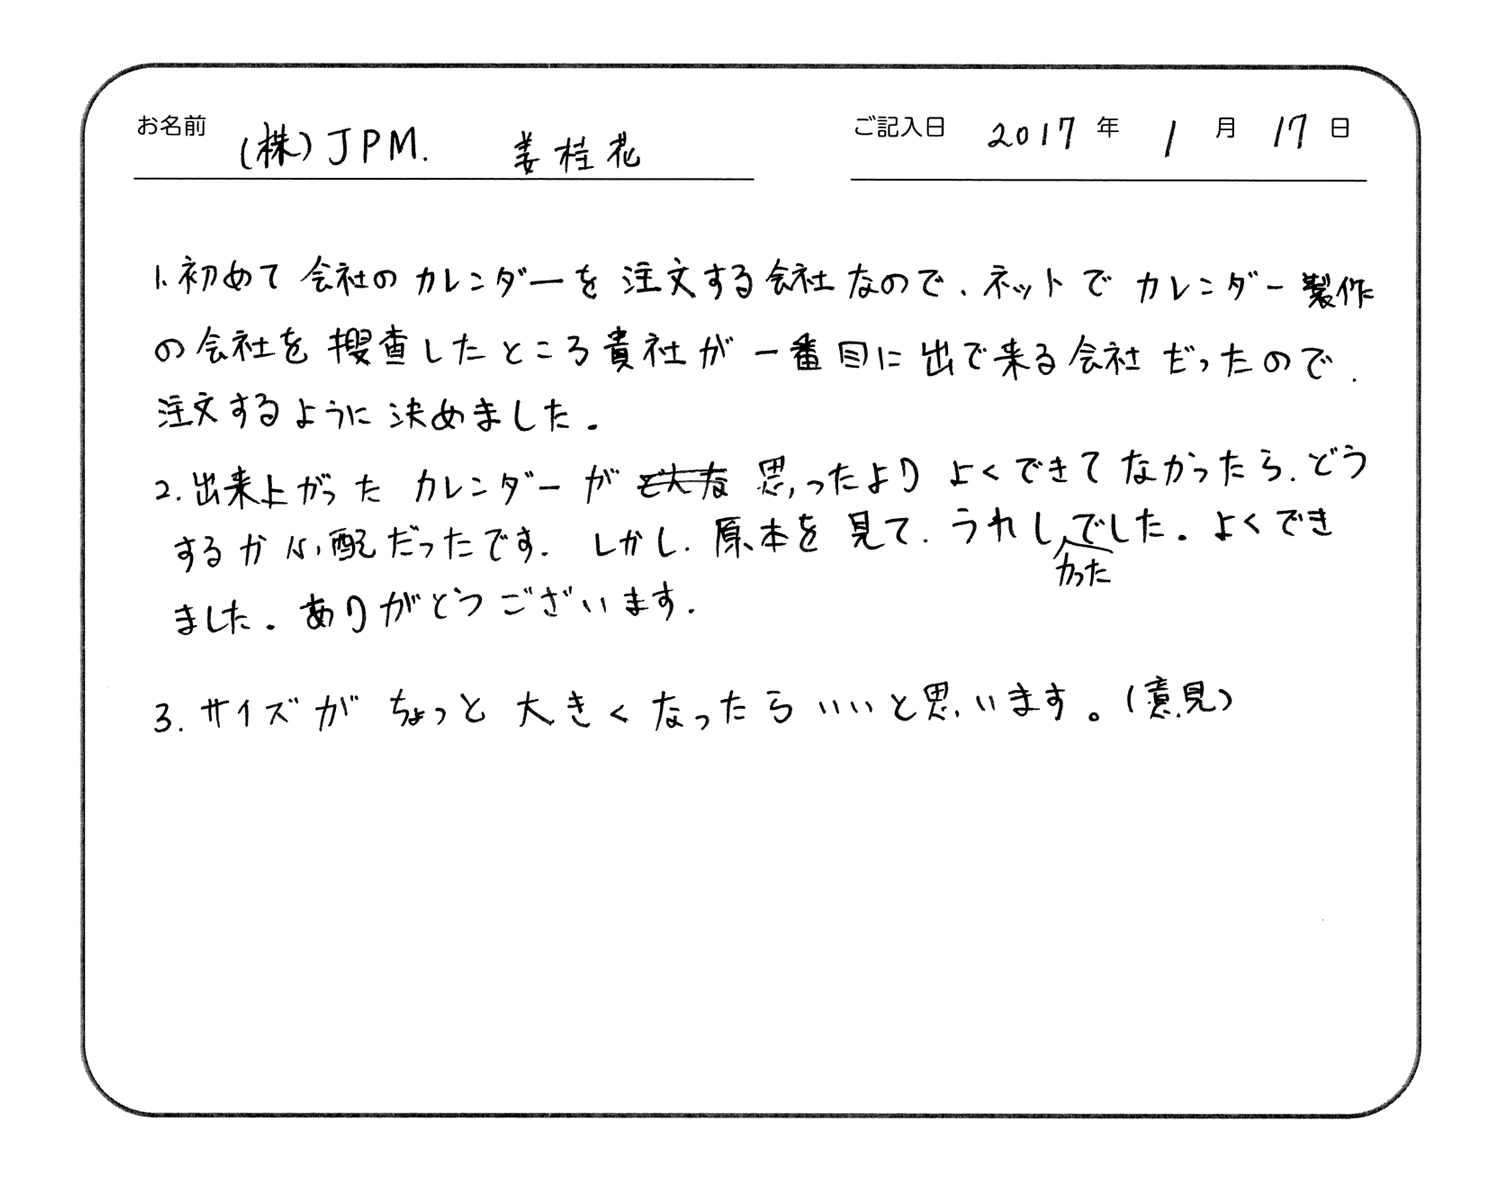 お名前 (株)JPM. 姜桂花 ご記入日 2017年 1月 17日
1.初めて会社のカレンダーを注文する会社なので、ネットでカレンダー製作
の会社を捜査したところ貴社が一番目に出で来る会社だったので.
注文するように決めました。
2.出来上がったカレンダーが思ったよりよくできてなかったら、どう
するか心配だったです. しかし、原本を見て、うれしかったでした。よくでき
ました。ありがどうございます.
3.サイズがちょっと大きくなったらいいと思います。(意見)